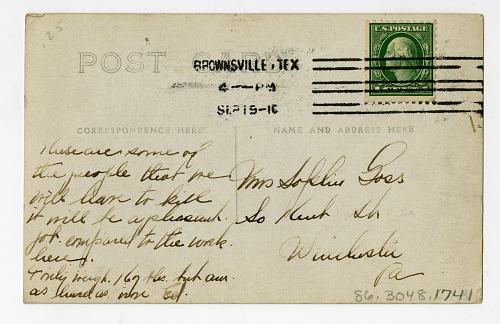 25
POST CARD
BROWNSVILLE, TEX
4 — PM
SEP 19-16
U.S. POSTAGE
CORRESPONDENCE HERE
NAME AND ADDRESS HERE
These are some of
the people that we
will have to kill
it will be a pleasant
job. compared to the work
here.
I only weigh. 167 lbs. but am
as hard as iron Ed.
Mrs Sophie Goss
So Kent St
Winchester
Va
86.3048.1741